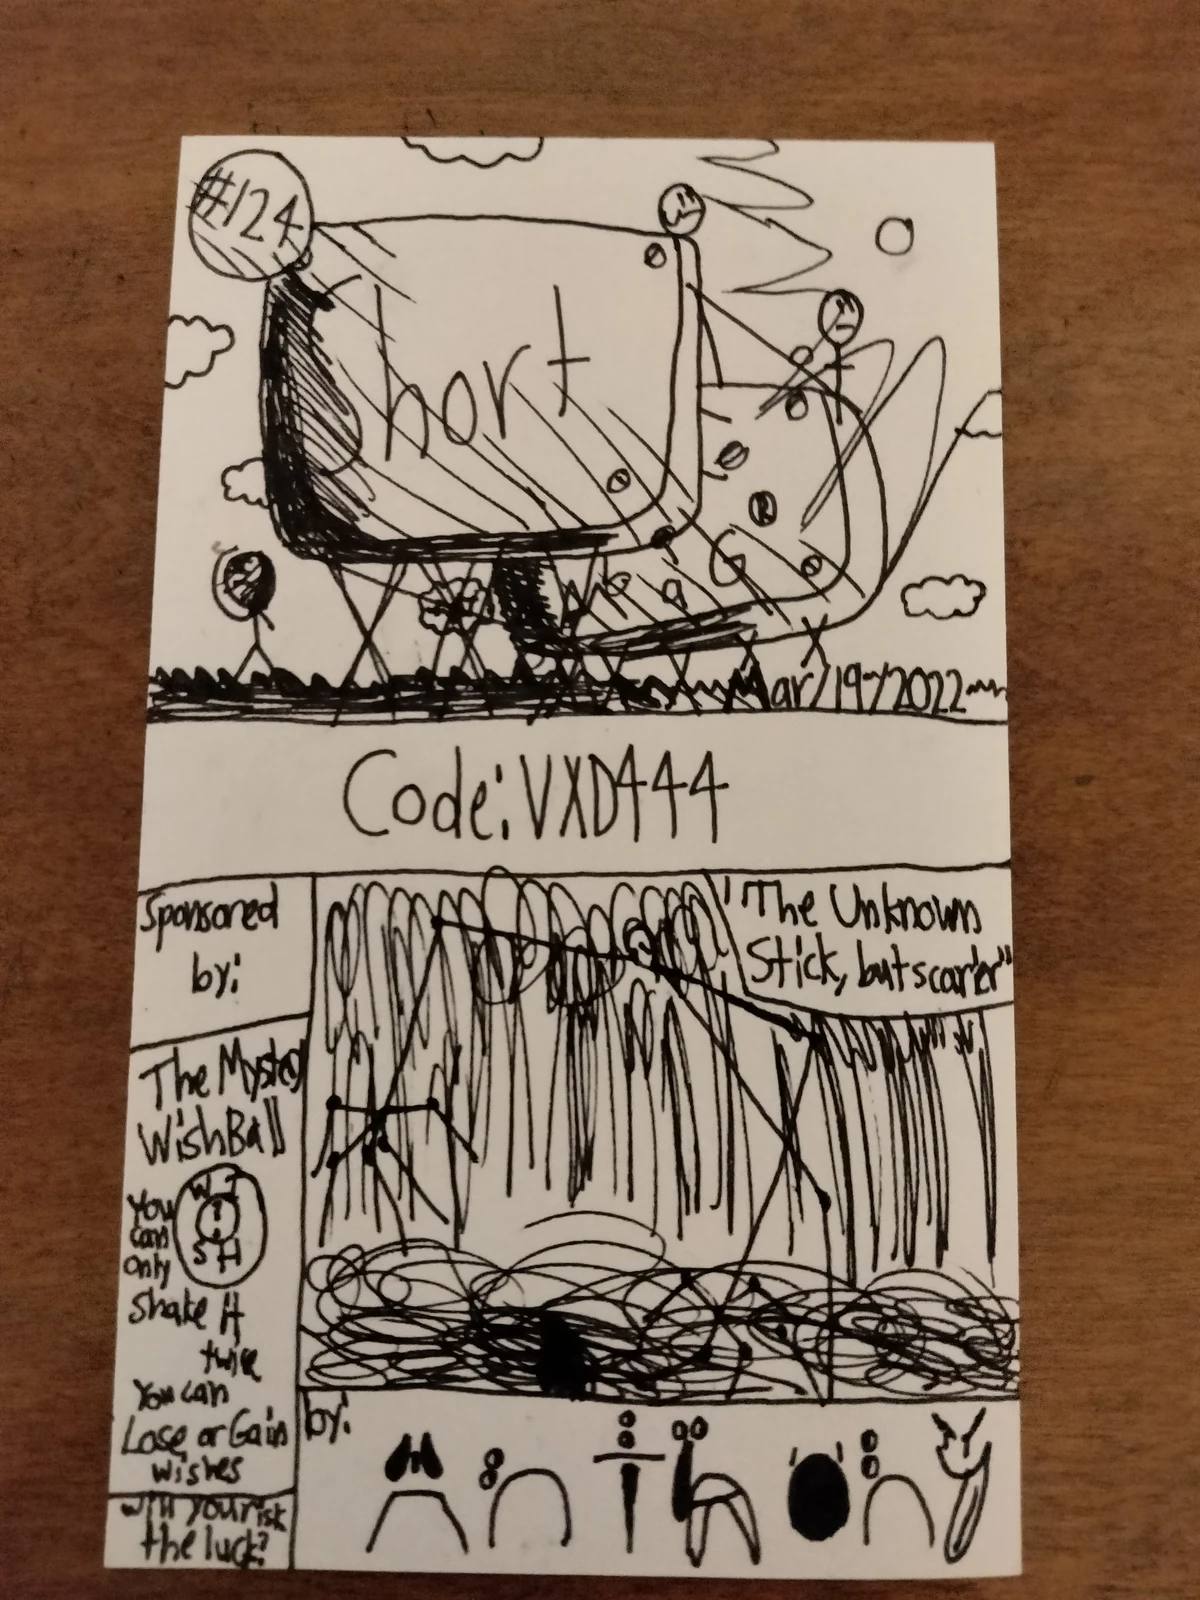 #124
Short
Mar/19/2022
Code: VXD444
Sponsored
by:
"The Unknown
Stick, but scarier"
The Mystery
WishBall
W I
S H
You
can
only
Shake it
twice
You can
Lose or Gain
wishes
will you risk
the luck?
by: